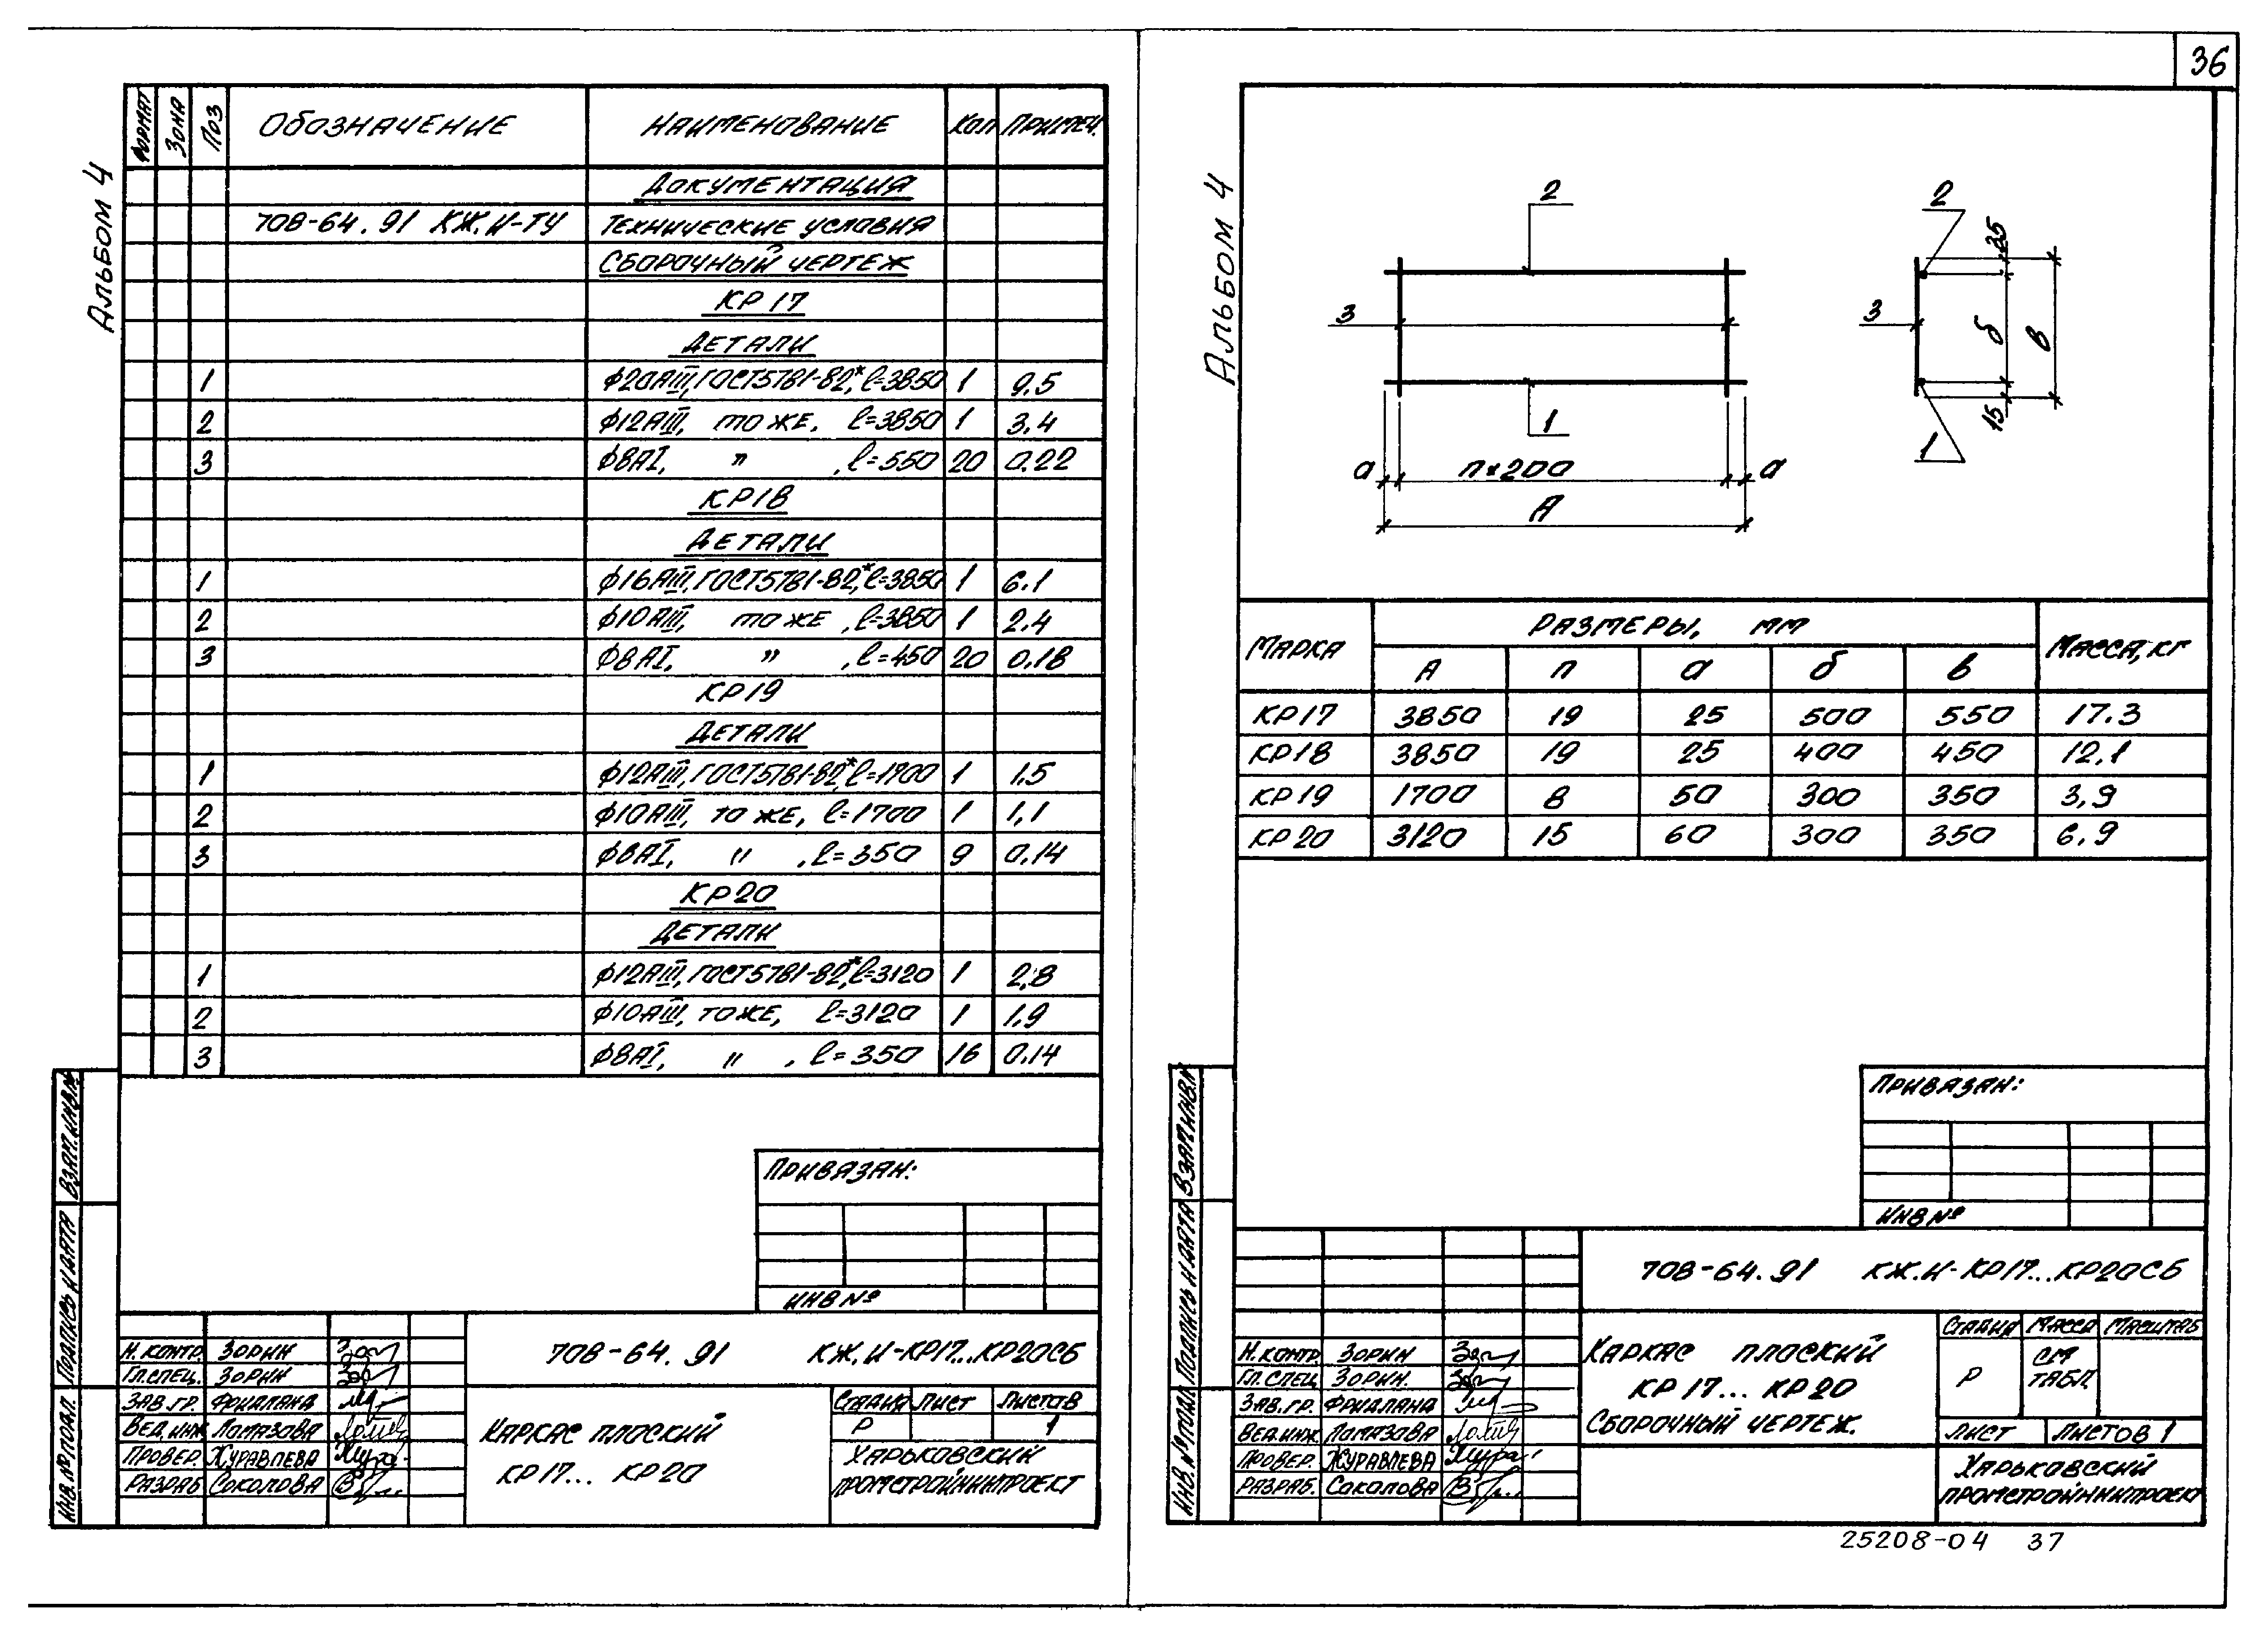 36
Альбом 4
Формат Зона Поз Обозначение Наименование Кол Примеч.
Документация
708-64.91 КЖ.И-ТУ Технические условия
Сборочный чертеж
КР17
Детали
1 ф20АIII, ГОСТ5781-82*, l=3850 1 9.5
2 ф12АIII, то же, l=3850 1 3.4
3 ф8АI, " , l=550 20 0.22
КР18
Детали
1 ф16АIII, ГОСТ5781-82*, l=3850 1 6.1
2 ф10АIII, то же, l=3850 1 2.4
3 ф8АI, " , l=450 20 0.18
КР19
Детали
1 ф12АIII, ГОСТ5781-82*, l=1700 1 1.5
2 ф10АIII, то же, l=1700 1 1,1
3 ф8АI, " , l=350 9 0.14
КР20
Детали
1 ф12АIII, ГОСТ5781-82*, l=3120 1 2,8
2 ф10АIII, то же, l=3120 1 1.9
3 ф8АI, " , l=350 16 0.14
Привязан:
ИНВ №
Взам.инв.№
Подпись и дата
Инв.№ подл.
Н.контр. Зорин
Гл.спец. Зорин
Зав.гр. Фридляна
Вед.инж Ломазова
Провер. Журавлева
Разраб Соколова
708-64.91 КЖ.И-КР17...КР20СБ
Каркас плоский
КР17... КР20
Стадия Лист Листов
Р 1
Харьковский
Промстройниипроект
Альбом 4
2
3
1
а п×200 а
А
2
3
1
25
б
15
в
Марка Размеры, мм Масса, кг
А п а б в
КР17 3850 19 25 500 550 17.3
КР18 3850 19 25 400 450 12,1
КР19 1700 8 50 300 350 3,9
КР20 3120 15 60 300 350 6.9
Привязан:
ИНВ №
Взам инв.№
Подпись и дата
Инв.№ подл
Н.контр Зорин
Гл.спец Зорин.
Зав.гр. Фридляна
Вед.инж Ломазова
Провер. Журавлева
Разраб. Соколова
708-64.91 КЖ.И-КР17...КР20СБ
Каркас плоский
КР17... КР20
Сборочный чертеж.
Стадия Масса Масштаб
Р см табл
Лист Листов 1
Харьковский
Промстройниипроект
25208-04 37